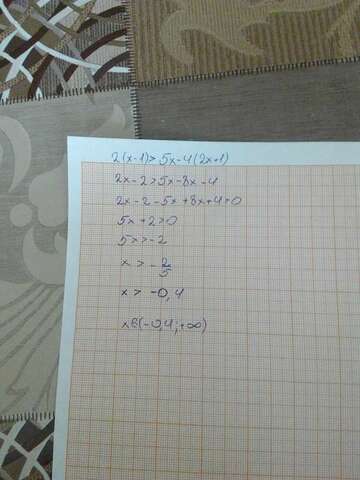 2(x-1)>5x-4(2x+1)
2x-2>5x-8x-4
2x-2-5x+8x+4>0
5x+2>0
5x>-2
x > -2/5
x > -0,4
xϵ(-0,4;+∞)